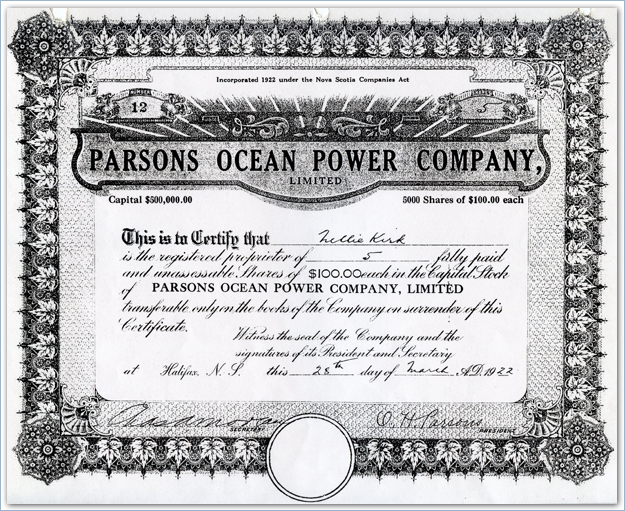 Incorporated 1922 under the Nova Scotia Companies Act
NUMBER
12
SHARES
5
PARSONS OCEAN POWER COMPANY,
LIMITED
Capital $500,000.00
5000 Shares of $100.00 each
This is to Certify that Nellie Kirk
is the registered proprietor of 5 fully paid
and unassessable Shares of $100.00 each in the Capital Stock
of PARSONS OCEAN POWER COMPANY, LIMITED
transferable only on the books of the Company on surrender of this
Certificate.
Witness the seal of the Company and the
signatures of its President and Secretary
at Halifax, N. S. this 28th day of March A.D. 1922
SECRETARY
O. H. Parsons
PRESIDENT